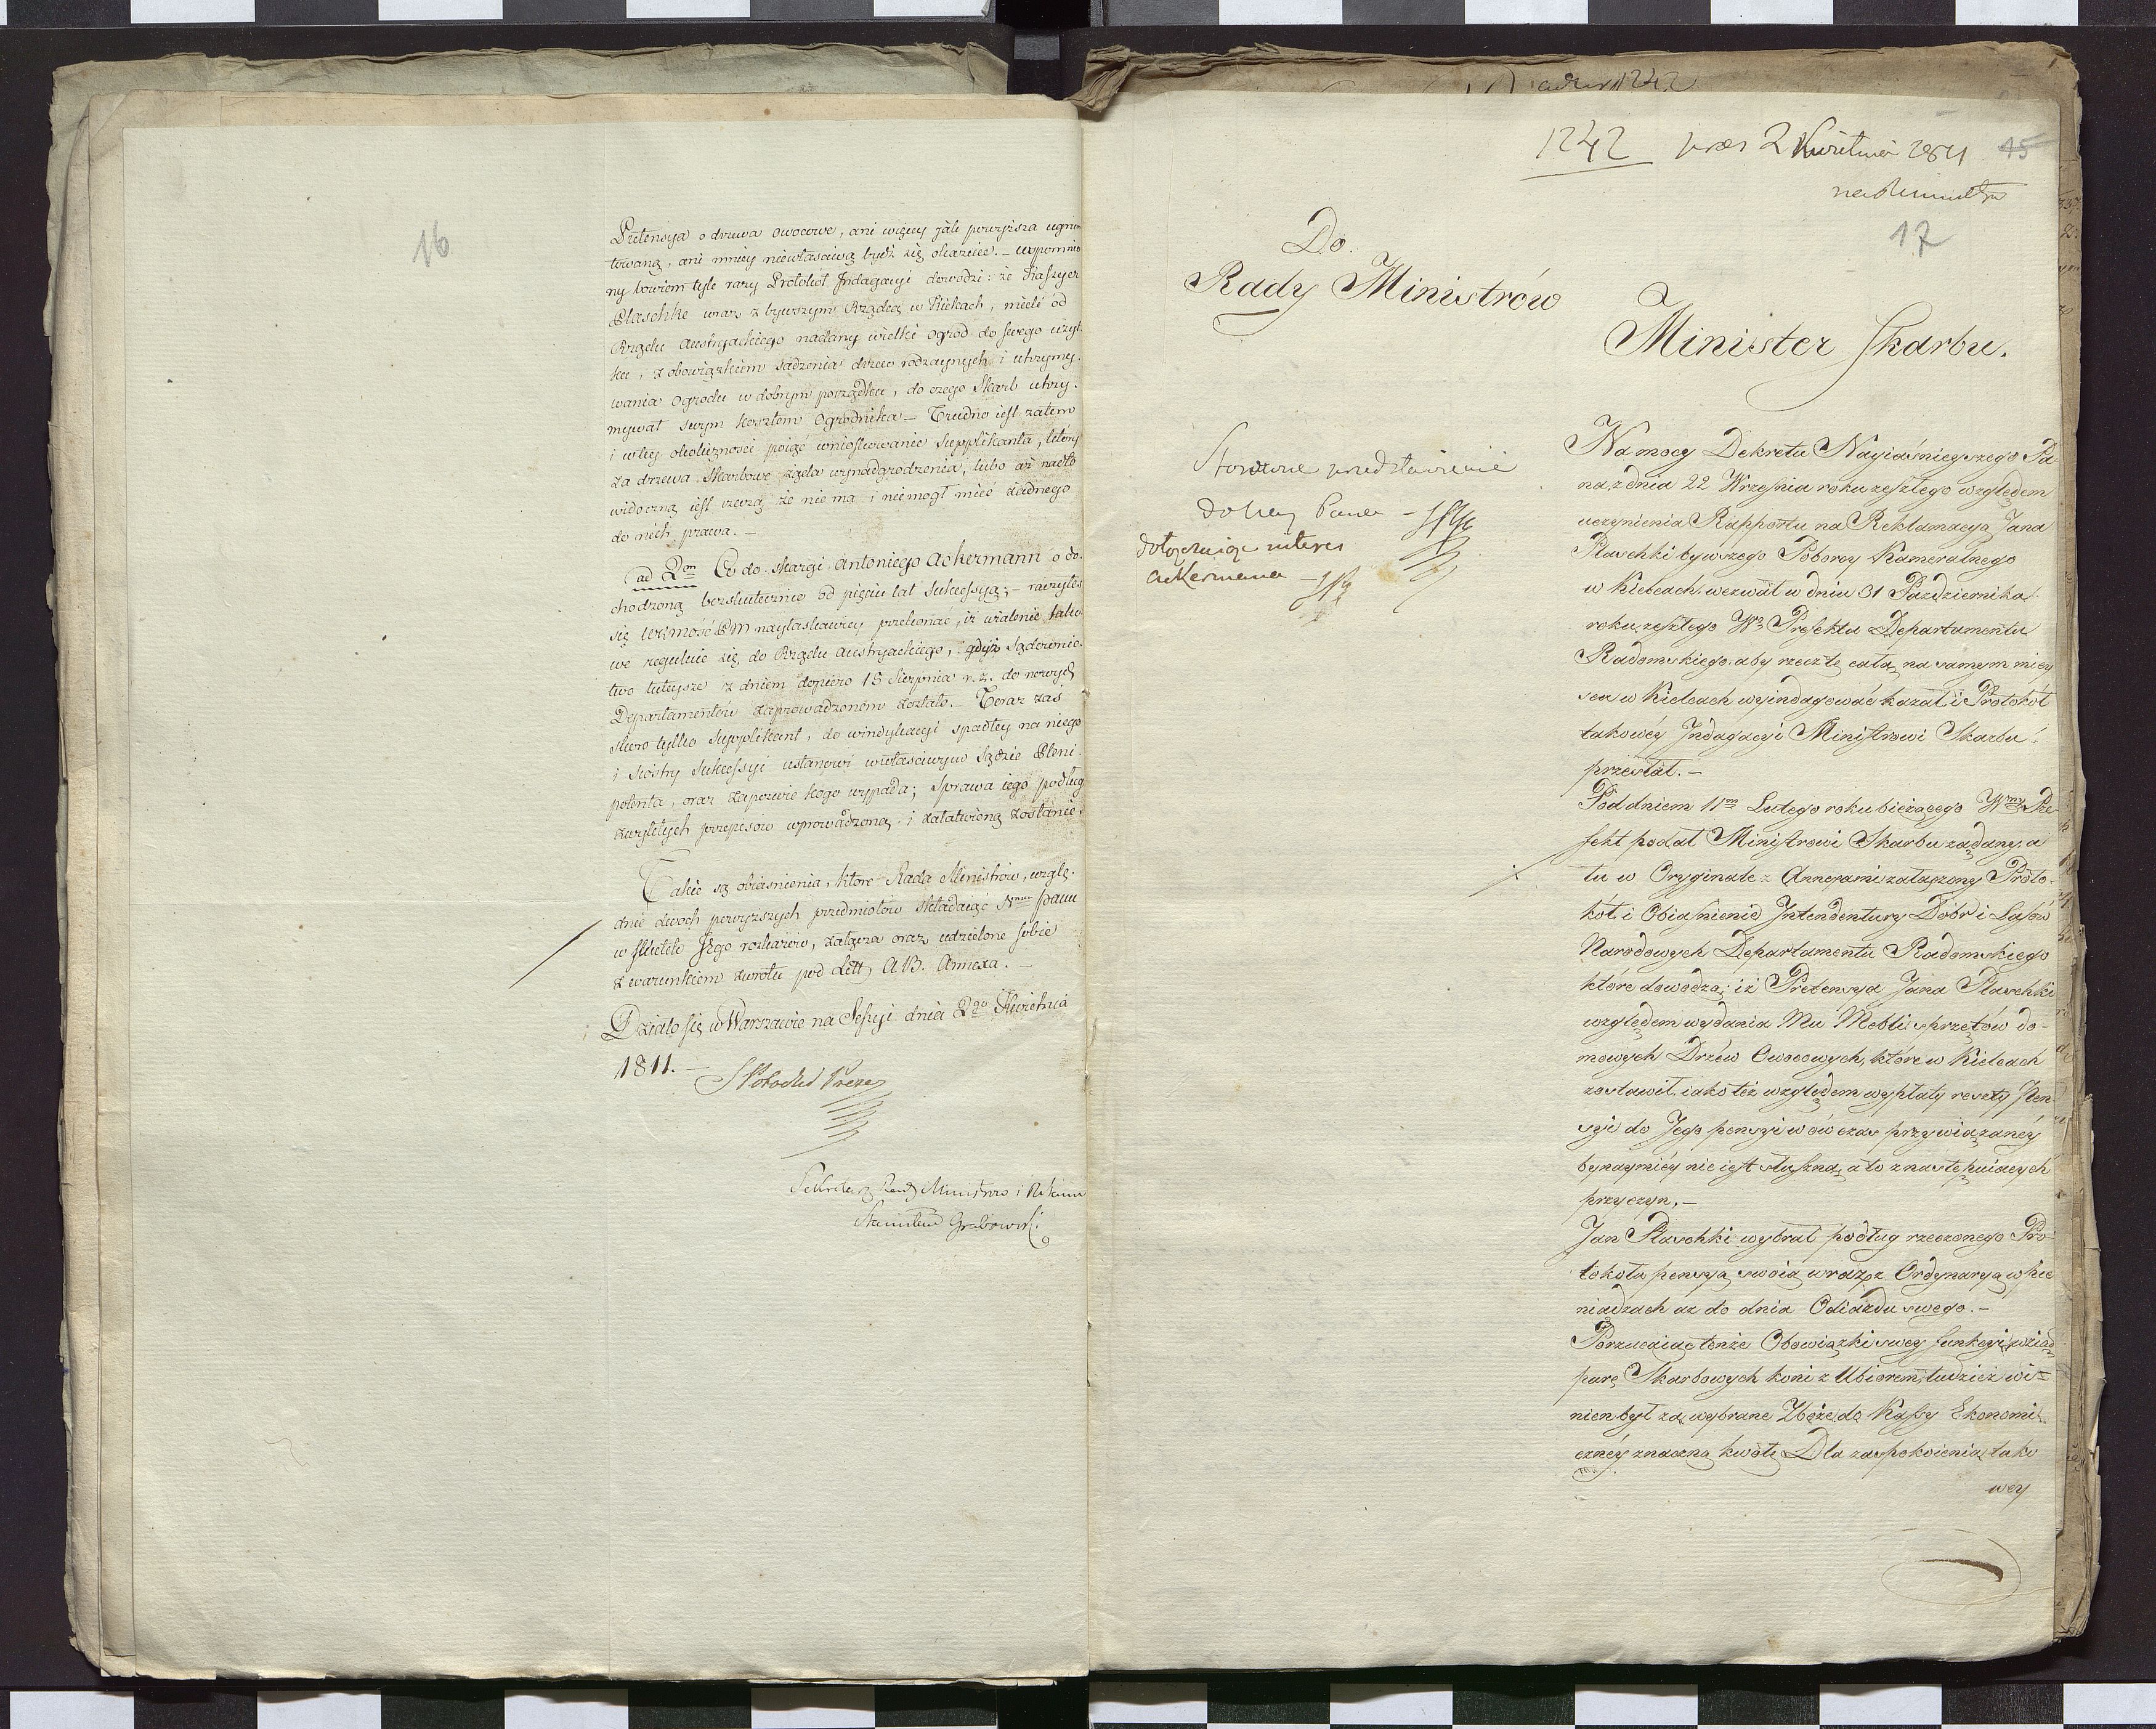 16
Pretensya o drzewa owocowe, ani więcey jak powyższa ugrun
towaną, ani mniey niewłaściwą bydź się okazuie. – wspomnio
ny bowiem tyle razy Protokół Indagacyi dowodzi: że Kassyer
Plaschke wraz z bywszym Rządcą w Kielcach, mieli od
Rządu Austryackiego nadany wielki ogrod do swego użyt
ku, z obowiązkiem sadzenia drzew rodzaynych i utrzymy.
wania ogrodu w dobrym porządku, do czego Skarb utrzy.
mywał swym kosztem Ogrodnika – Trudno iest zatem
i w tey okoliczności poiąć wnioskowanie supplikanta, który
za drzewa Skarbowe żąda wynadgrodzenia, lubo aż nadto
widoczną iest rzeczą że nie ma i niemogł mieć żadnego
do nich prawa. –
ad 2do Co do skargi Antoniego Ackermann o do.
chodzoną bezskutecznie od pięciu lat Sukcessyą; – raczyłeś
się WKMość PM nayłaskawiey przekonać, iż użalenie tako
we reguluie się do Rządu Austryackiego, gdyż Sądownic.
two tuteysze z dniem dopiero 15 Sierpnia r. z. do nowych
Departamentów zaprowadzonem zostało. Teraz zaś
skoro tylko Supplikant, do windykacyi spadłey na niego
i siostry Sukcessyi ustanowi w właściwym Sądzie Pleni.
potenta, oraz zapozwie kogo wypada; sprawa iego podług
zwykłych przepisów wprowadzoną i załatwioną zostanie.
Takie są obiasnienia, które Rada Ministrów, wzglę.
dnie dwoch powyższych przedmiotów składaiąc Nmu Panu
w skutek Jego rozkazów, załącza oraz udzielone sobie
z warunkiem zwrotu pod Litt, A.B. Annexa. –
Działo się w Warszawie na Sessyi dnia 2go Kwietnia
1811. –
S Potocki Prezes
Sekretarz Rady Ministrów i Stanu
Stanisław Grabowski
1242
1242 prez 2 Kwietnia 1811 15
17
Do
Rady Ministrów
Minister Skarbu.
Stosowne przedstawienie
do Nay Pana –
dołączaiąc interes
Ackermana –
Na mocy Dekretu Nayiaśnieyszego Pa
na, z dnia 22 Września roku zeszłego względem
uczynienia Rapportu na Reklamacyą Jana
Plaschki bywszego Poborcy Kameralnego
w Kielcach, wezwał w dniu 31 Października
roku zeszłego W° Prefekta Departamentu
Radomskiego, aby rzecz tę całą na samym miey
scu w Kielcach wyindagować kazał i Protokół
takowéy Indagacyi Ministrowi Skarbu
przesłał. –
Pod dniem 11m Lutego roku bieżącego Wny Pre
fekt podał Ministrowi Skarbu żądany, a
tu w Oryginale z Annexami załączony Proto.
kół i Obiaśnienie Intendentury Dóbr i Lasów
Narodowych Departamentu Radomskiego
które dowodzą; iż Pretensya Jana Plaschki
względem wydania Mu Mebli sprzętów do-
mowych Drzew Owocowych, które w Kielcach
zostawił, iako też względem wypłaty reszty Pen
syi do Jego pensyi wówczas przywiązanéy
bynaymiéy nie iest słuszną, a to z następuiących
przyczyn. –
Jan Plaschki wybrał podług rzeczonego Pro
tokołu pensyą swoią wraz z Ordynaryą w pie
niądzach aż do dnia Odiazdu swego. –
Porzucaiąc tenże Obowiązki swey funkcyi, wziął
parę Skarbowych koni z Ubiorem, tudzież wi=
nien był za wybrane Zboże do Kassy Ekonomi
cznéy znaczną kwotę. Dla zaspokoienia tako
wey